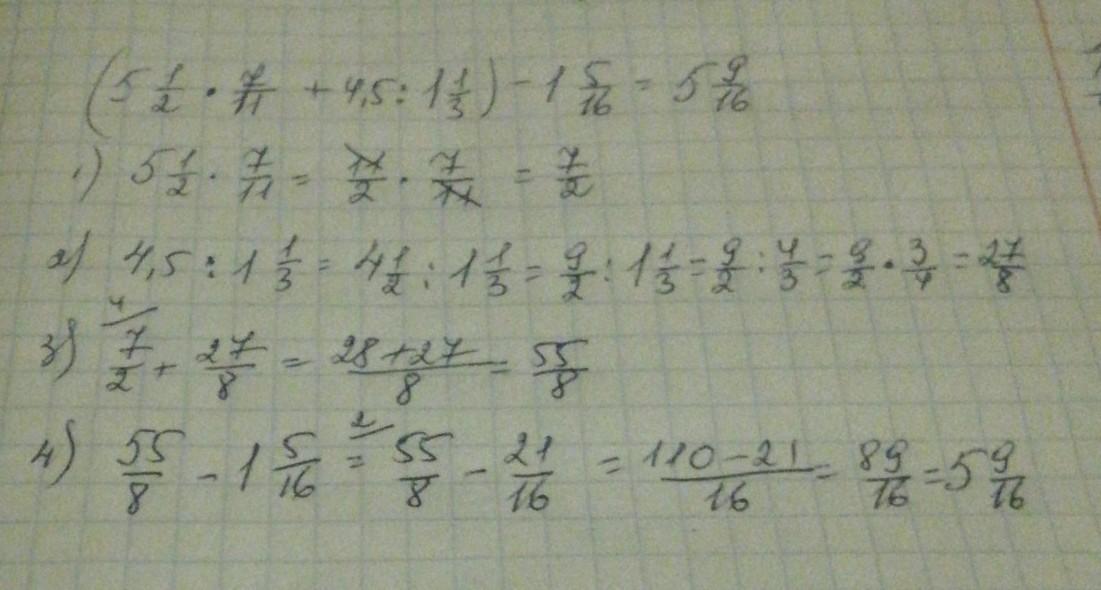 (5 1/2 · 7/11 + 4,5 : 1 1/3) - 1 5/16 = 5 9/16
1) 5 1/2 · 7/11 = 11/2 · 7/11 = 7/2
2) 4,5 : 1 1/3 = 4 1/2 : 1 1/3 = 9/2 : 1 1/3 = 9/2 : 4/3 = 9/2 · 3/4 = 27/8
3) 4/ 7/2 + 27/8 = 28+27/8 = 55/8
4) 55/8 - 1 5/16 = 2/ 55/8 - 21/16 = 110-21/16 = 89/16 = 5 9/16